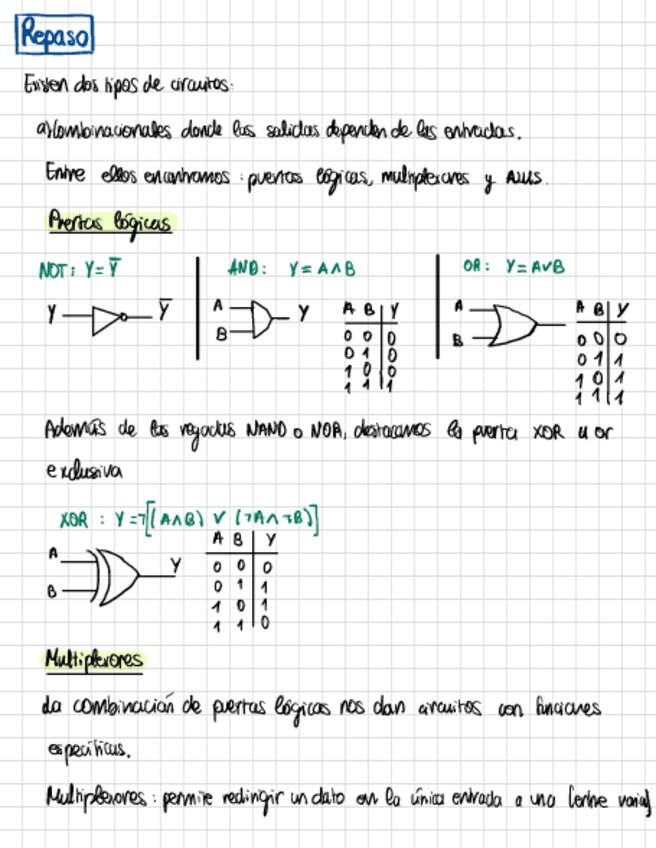 Repaso
Existen dos tipos de circuitos:
a) Combinacionales donde las salidas dependen de las entradas.
Entre ellos encontramos: puertas lógicas, multiplexores y ALUs.
Puertas lógicas
NOT: Y = Y̅
AND: Y = A∧B
OR: Y = A∨B
Y Y̅
A B Y
A B Y
0 0 0
0 1 0
1 0 0
1 1 1
A B
A B Y
0 0 0
0 1 1
1 0 1
1 1 1
Además de las negadas NAND o NOR, destacamos la puerta XOR u or
exclusiva
XOR : Y = ¬[(A∧B) ∨ (¬A∧¬B)]
A B Y
A B Y
0 0 0
0 1 1
1 0 1
1 1 0
Multiplexores
La combinación de puertas lógicas nos dan circuitos con funciones
específicas.
Multiplexores: permite redirigir un dato en la única entrada a una (entre varias)